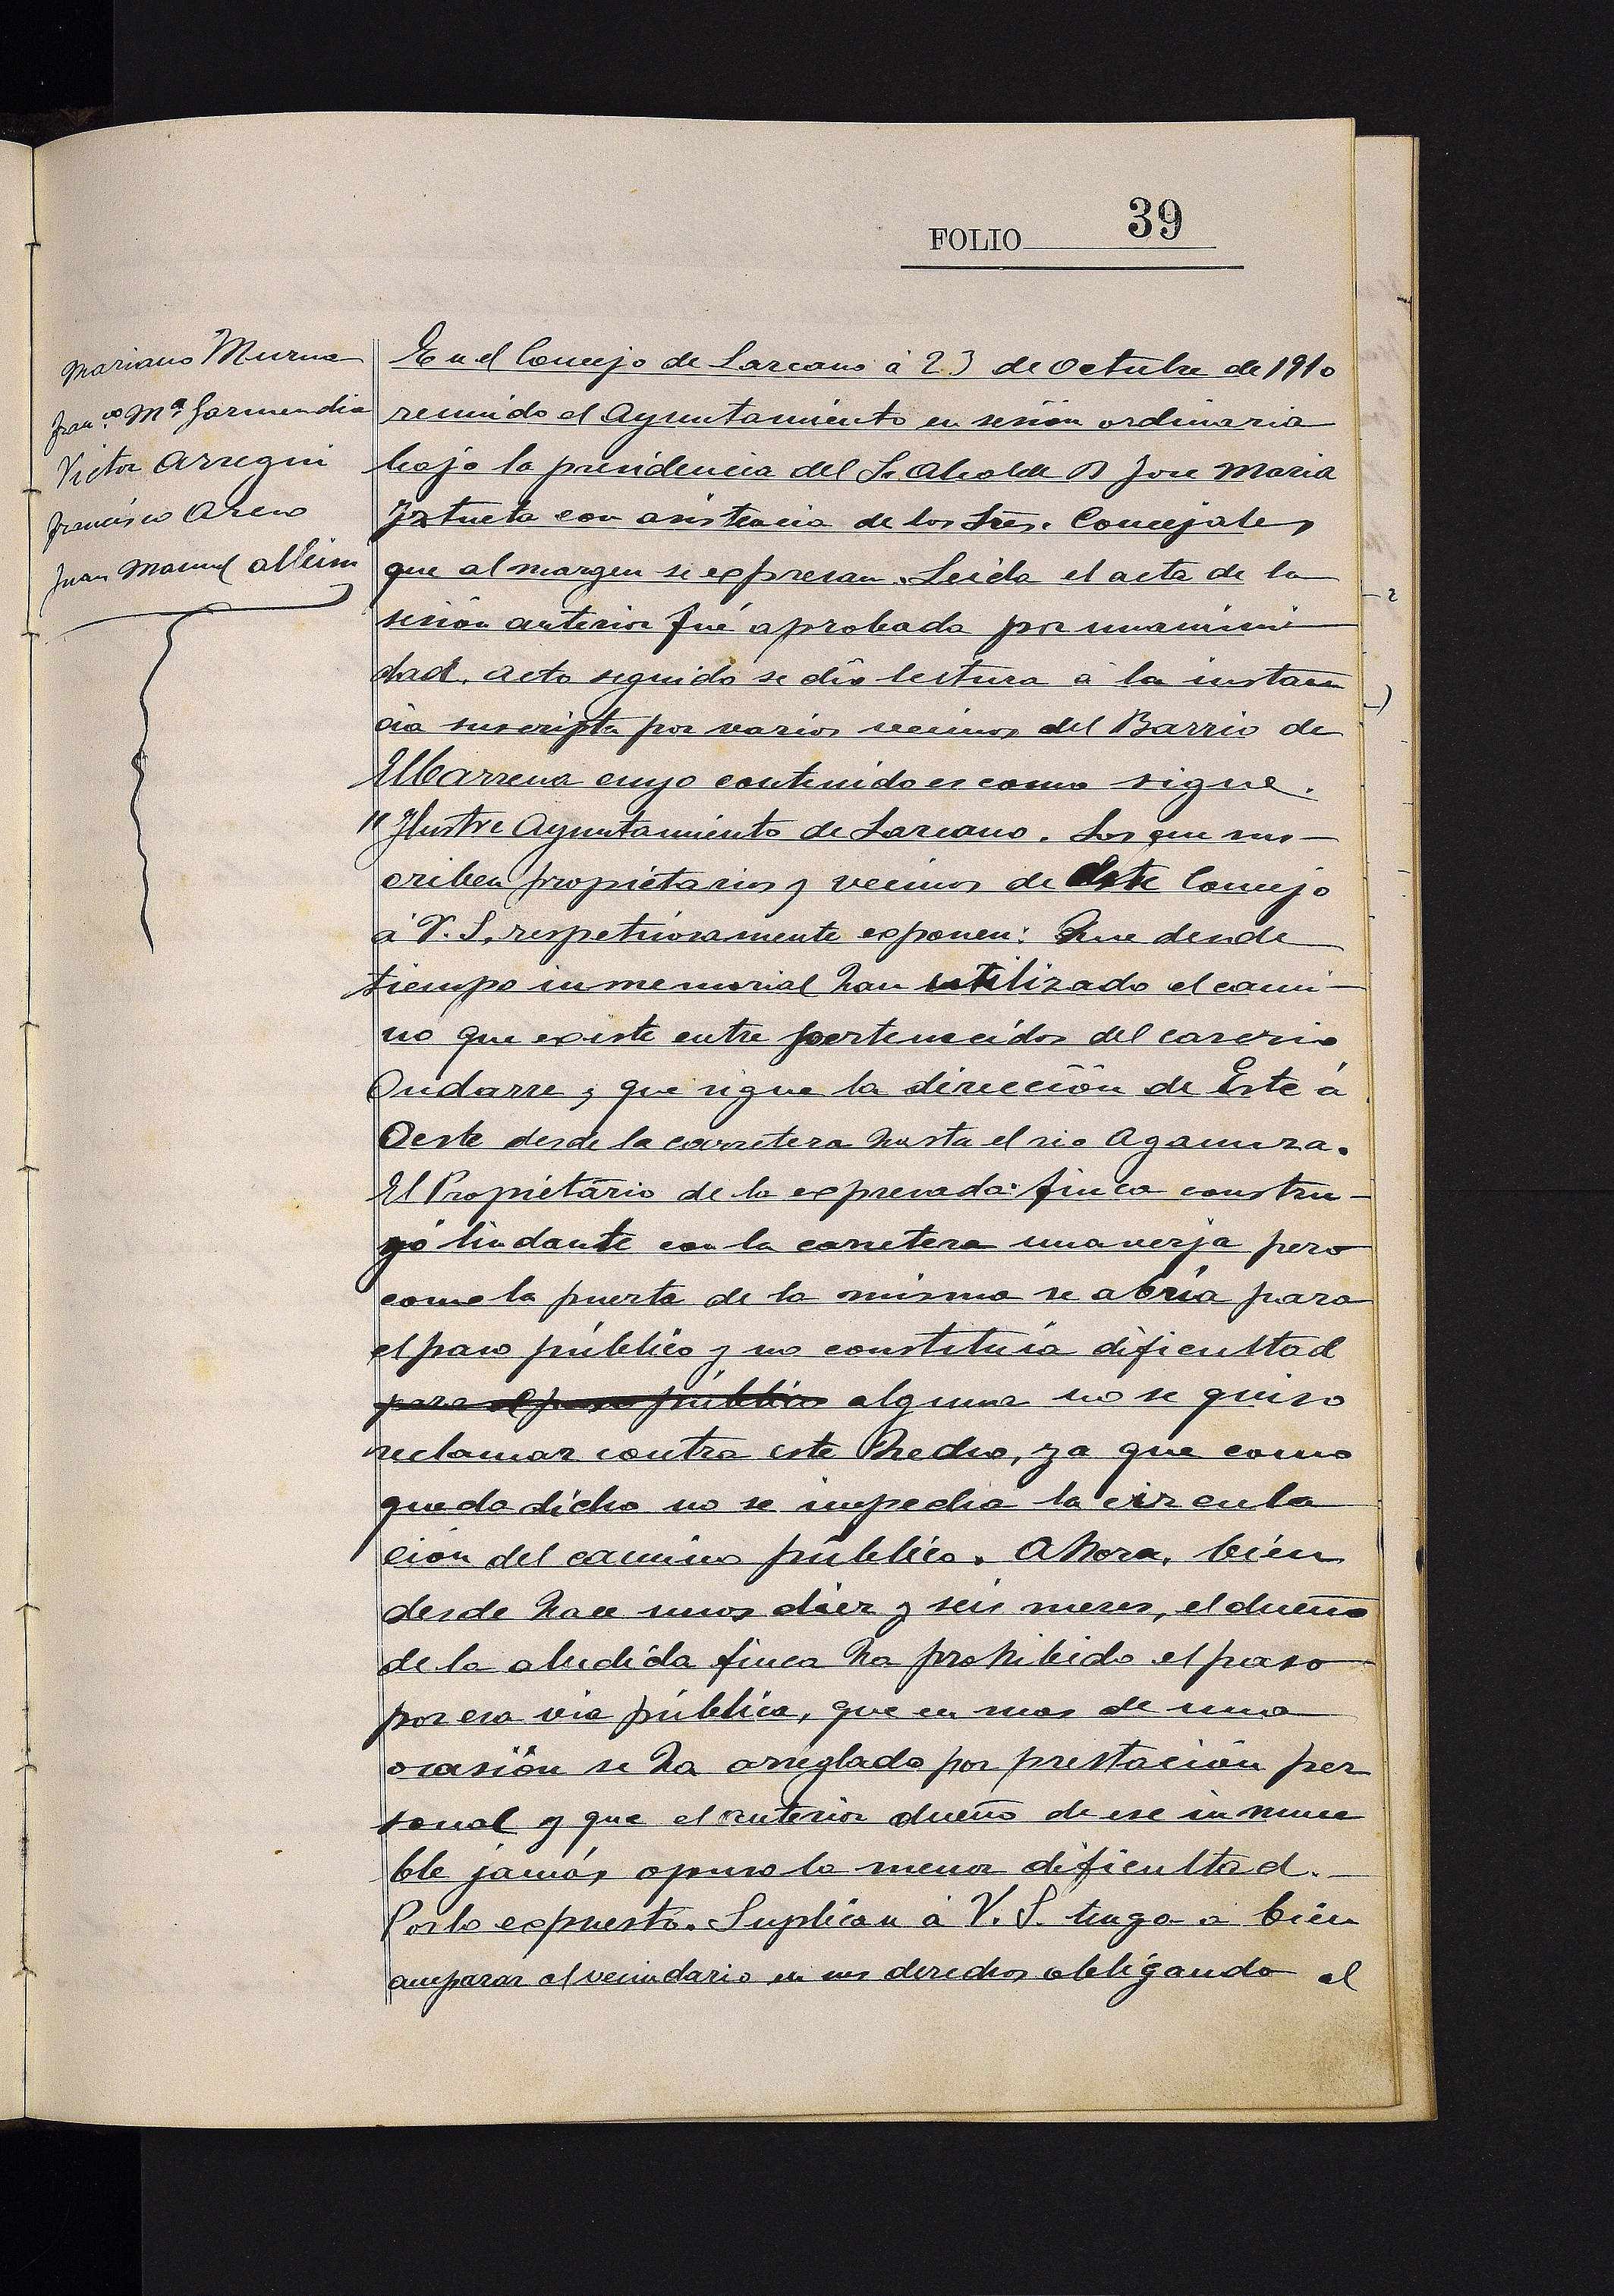 FOLIO 39
Mariano Murua
Fran.co Mª Garmendia
Victor Arregui
Francisco Aseno
Juan Manuel Albisu
En el Concejo de Lazcano á 23 de Octubre de 1910
reunido el Ayuntamiento en sesión ordinaria
bajo la presidencia del Sr Alcalde D Jose Maria
Iztueta con asistencia de los Sres. Concejales
que al margen se expresan. Leida el acta de la
sesión anterior fué aprobada por unanimi
dad. Acto seguido se dio lectura á la instan
cia suscripta por varios vecinos del Barrio de
Elbarrena cuyo contenido es como sigue.
"Ilustre Ayuntamiento de Lazcano. Los que sus-
criben propietarios y vecinos de Este Concejo
á V. S. respetuosamente exponen: Que desde
tiempo inmemorial han utilizado el cami-
no que existe entre pertenecidos del caserio
Ondarre y que sigue la dirección de Este á
Oeste desde la carretera hasta el rio Agaunza.
El Propietario de la expresada finca constru-
yó lindante con la carretera una verja pero
como la puerta de la misma se abria para
el paso público y no constituia dificultad
para el paso público alguna no se quiso
reclamar contra este hecho, ya que como
queda dicho no se impedia la circula
ción del camino público. Ahora, bien
desde hace unos diez y seis meses, el dueño
de la aludida finca ha prohibido el paso
por esa via pública, que en mas de una
ocasión se ha arreglado por prestación per
sonal y que el anterior dueño de ese inmue
ble jamás opuso la menor dificultad.-
Por lo expuesto. Suplican á V. S. tenga á bien
amparar al vecindario en sus derechos obligando al